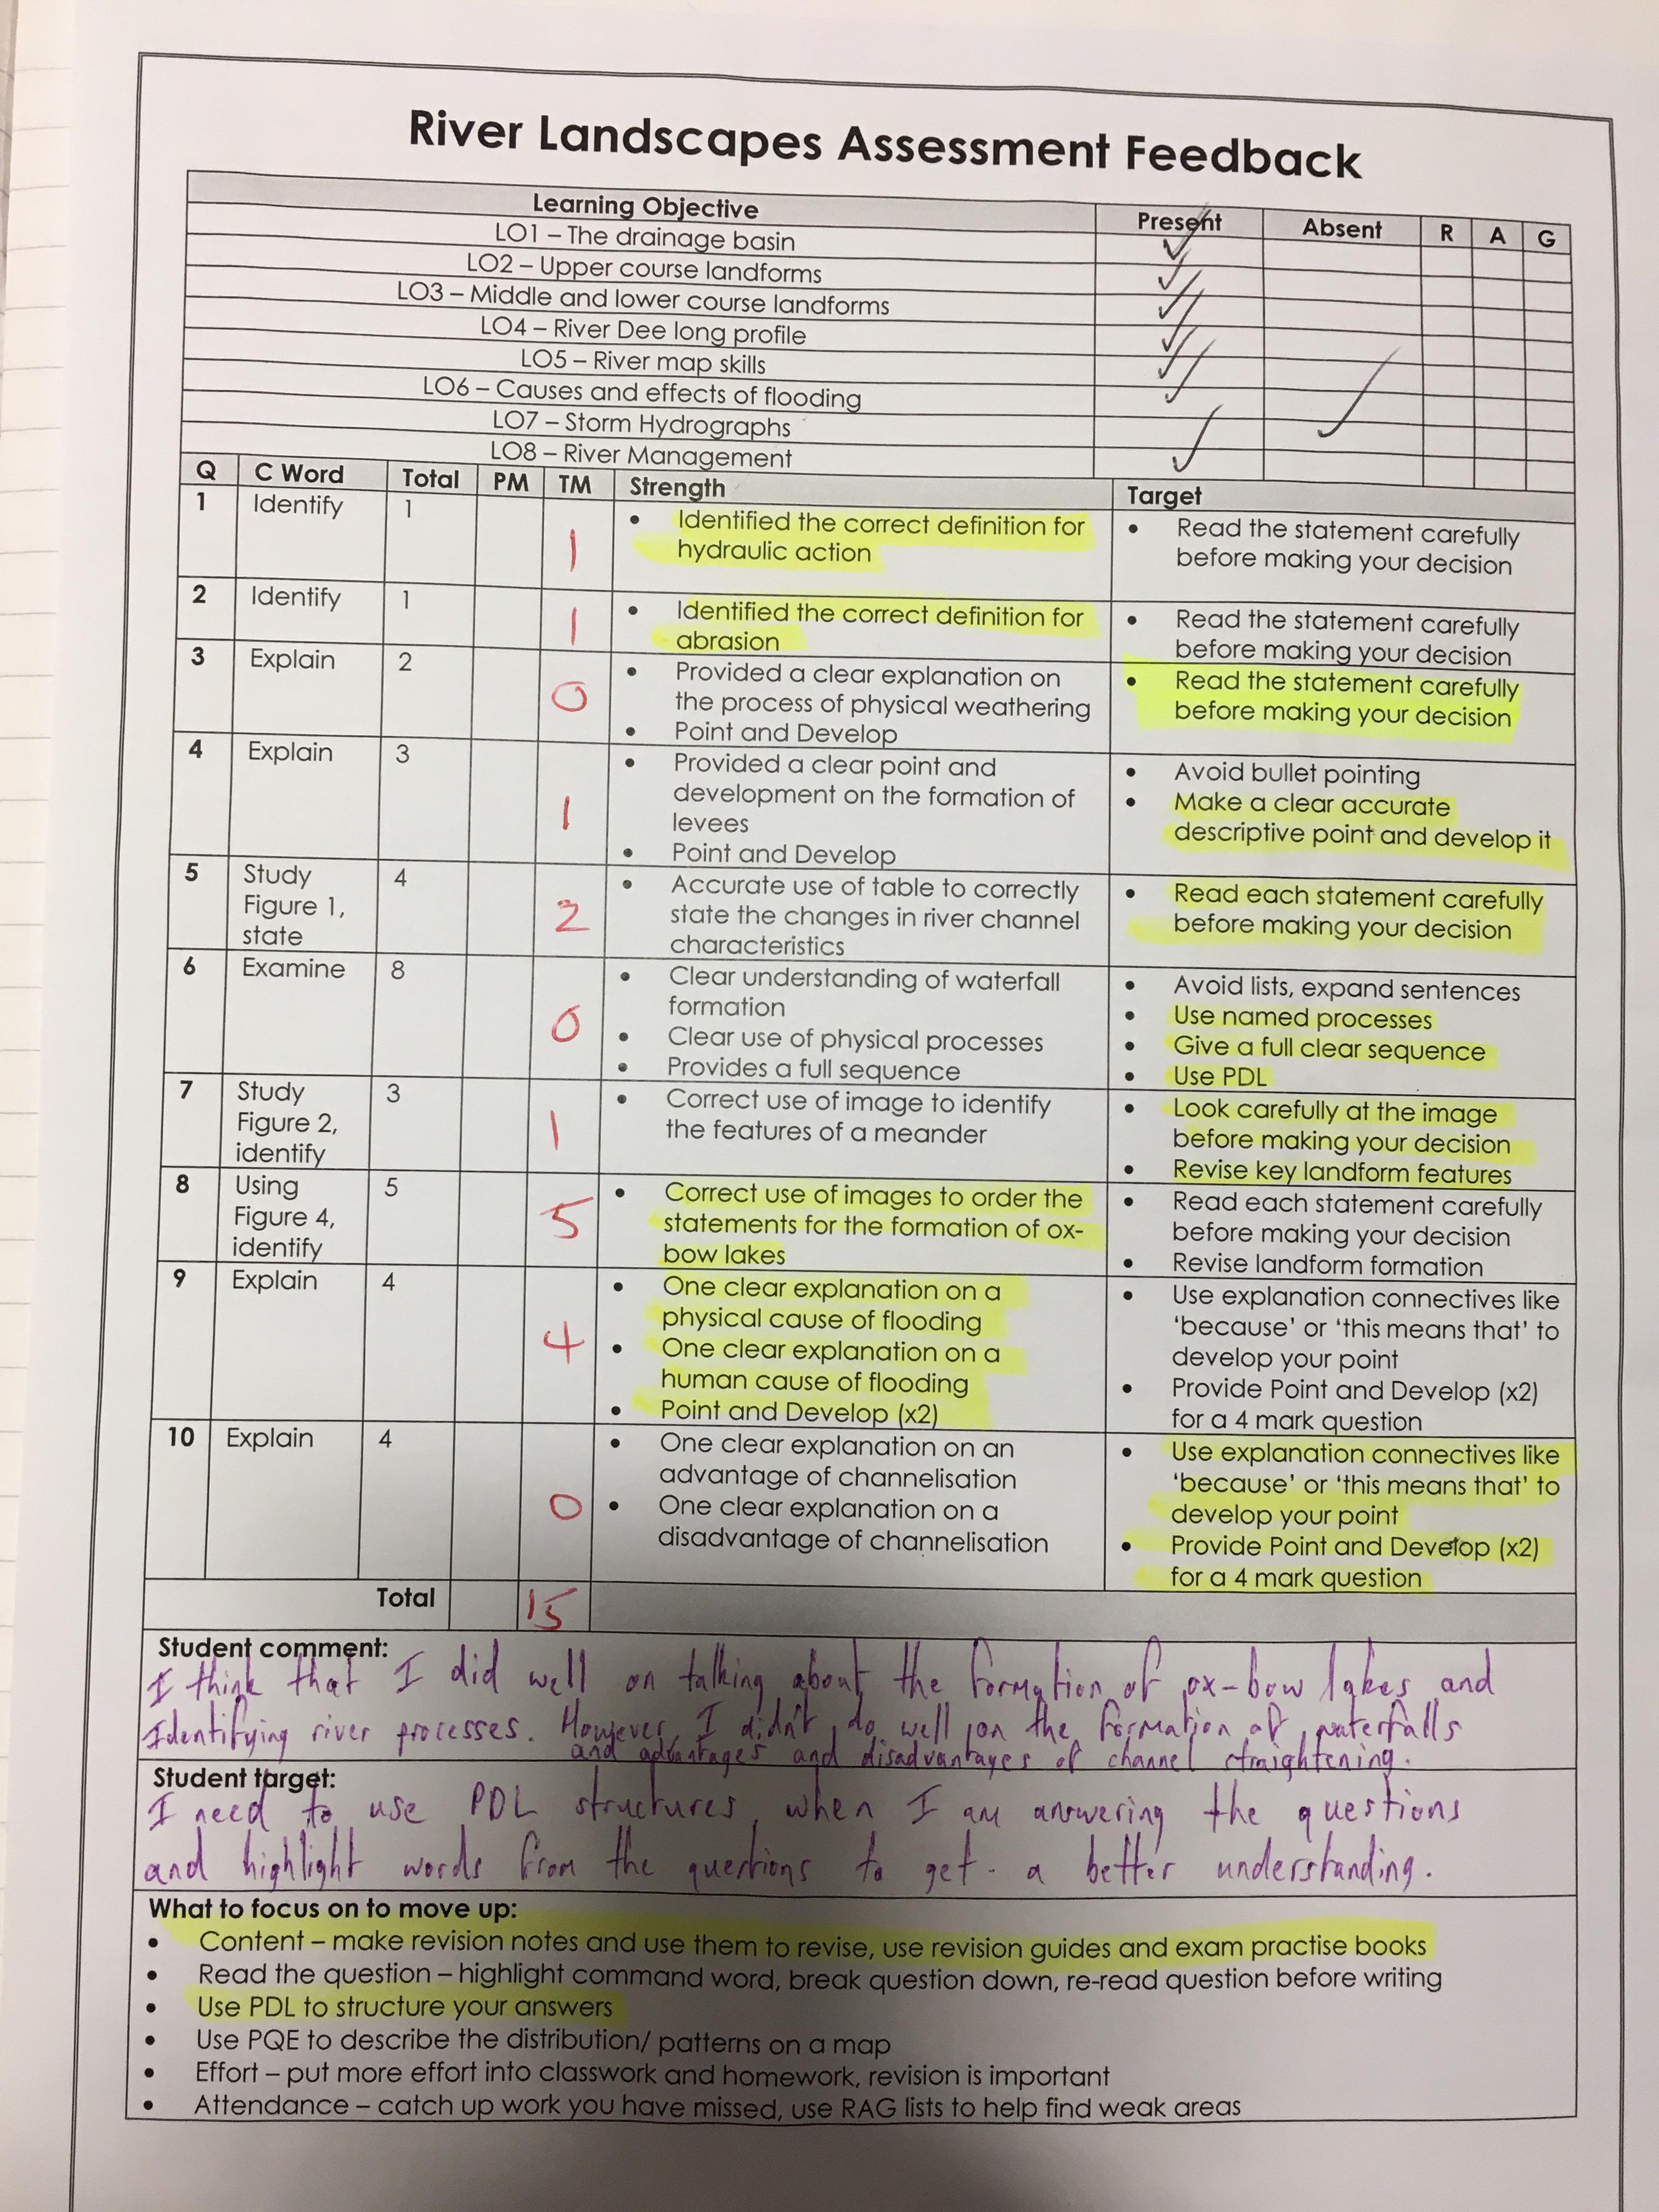 River Landscapes Assessment Feedback
Learning Objective Present Absent R A G
LO1 – The drainage basin ✓
LO2 – Upper course landforms ✓
LO3 – Middle and lower course landforms ✓
LO4 – River Dee long profile ✓
LO5 – River map skills ✓
LO6 – Causes and effects of flooding ✓
LO7 – Storm Hydrographs ✓
LO8 – River Management ✓
Q C Word Total PM TM Strength Target
1 Identify 1 1
• Identified the correct definition for
hydraulic action
• Read the statement carefully
before making your decision
2 Identify 1 1
• Identified the correct definition for
abrasion
• Read the statement carefully
before making your decision
3 Explain 2 0
• Provided a clear explanation on
the process of physical weathering
• Point and Develop
• Read the statement carefully
before making your decision
4 Explain 3 1
• Provided a clear point and
development on the formation of
levees
• Point and Develop
• Avoid bullet pointing
• Make a clear accurate
descriptive point and develop it
5 Study
Figure 1,
state
4 2
• Accurate use of table to correctly
state the changes in river channel
characteristics
• Read each statement carefully
before making your decision
6 Examine 8 0
• Clear understanding of waterfall
formation
• Clear use of physical processes
• Provides a full sequence
• Avoid lists, expand sentences
• Use named processes
• Give a full clear sequence
• Use PDL
7 Study
Figure 2,
identify
3 1
• Correct use of image to identify
the features of a meander
• Look carefully at the image
before making your decision
• Revise key landform features
8 Using
Figure 4,
identify
5 5
• Correct use of images to order the
statements for the formation of ox-
bow lakes
• Read each statement carefully
before making your decision
• Revise landform formation
9 Explain 4 4
• One clear explanation on a
physical cause of flooding
• One clear explanation on a
human cause of flooding
• Point and Develop (x2)
• Use explanation connectives like
'because' or 'this means that' to
develop your point
• Provide Point and Develop (x2)
for a 4 mark question
10 Explain 4 0
• One clear explanation on an
advantage of channelisation
• One clear explanation on a
disadvantage of channelisation
• Use explanation connectives like
'because' or 'this means that' to
develop your point
• Provide Point and Develop (x2)
for a 4 mark question
Total 15
Student comment:
I think that I did well on talking about the formation of ox-bow lakes and
Identifying river processes. However, I didn't do well on the formation of waterfalls
and advantages and disadvantages of channel straightening.
Student target:
I need to use PDL structures when I am answering the questions
and highlight words from the questions to get a better understanding.
What to focus on to move up:
• Content – make revision notes and use them to revise, use revision guides and exam practise books
• Read the question – highlight command word, break question down, re-read question before writing
• Use PDL to structure your answers
• Use PQE to describe the distribution/ patterns on a map
• Effort – put more effort into classwork and homework, revision is important
• Attendance – catch up work you have missed, use RAG lists to help find weak areas